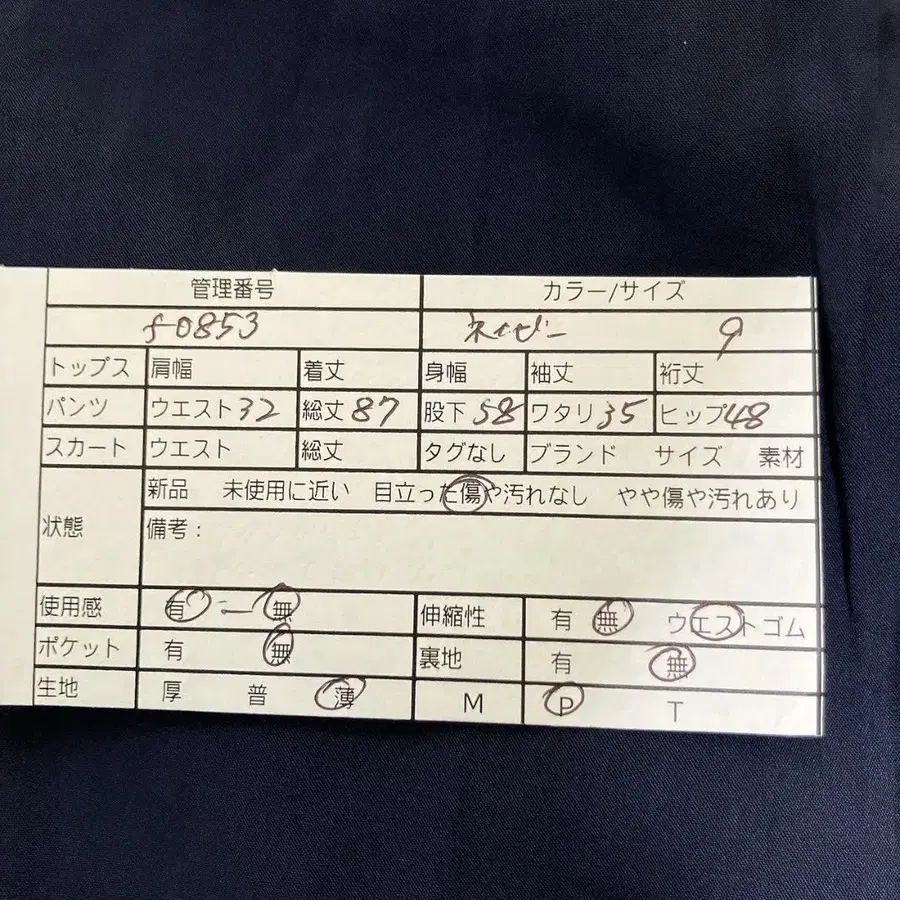 管理番号 カラー/サイズ
f0853 ネイビー 9
トップス 肩幅 着丈 身幅 袖丈 裄丈
パンツ ウエスト32 総丈87 股下58 ワタリ35 ヒップ48
スカート ウエスト 総丈 タグなし ブランド サイズ 素材
状態 新品 未使用に近い 目立った傷や汚れなし やや傷や汚れあり
備考：
使用感 有 ー 無 伸縮性 有 無 ウエストゴム
ポケット 有 無 裏地 有 無
生地 厚 普 薄 M P T